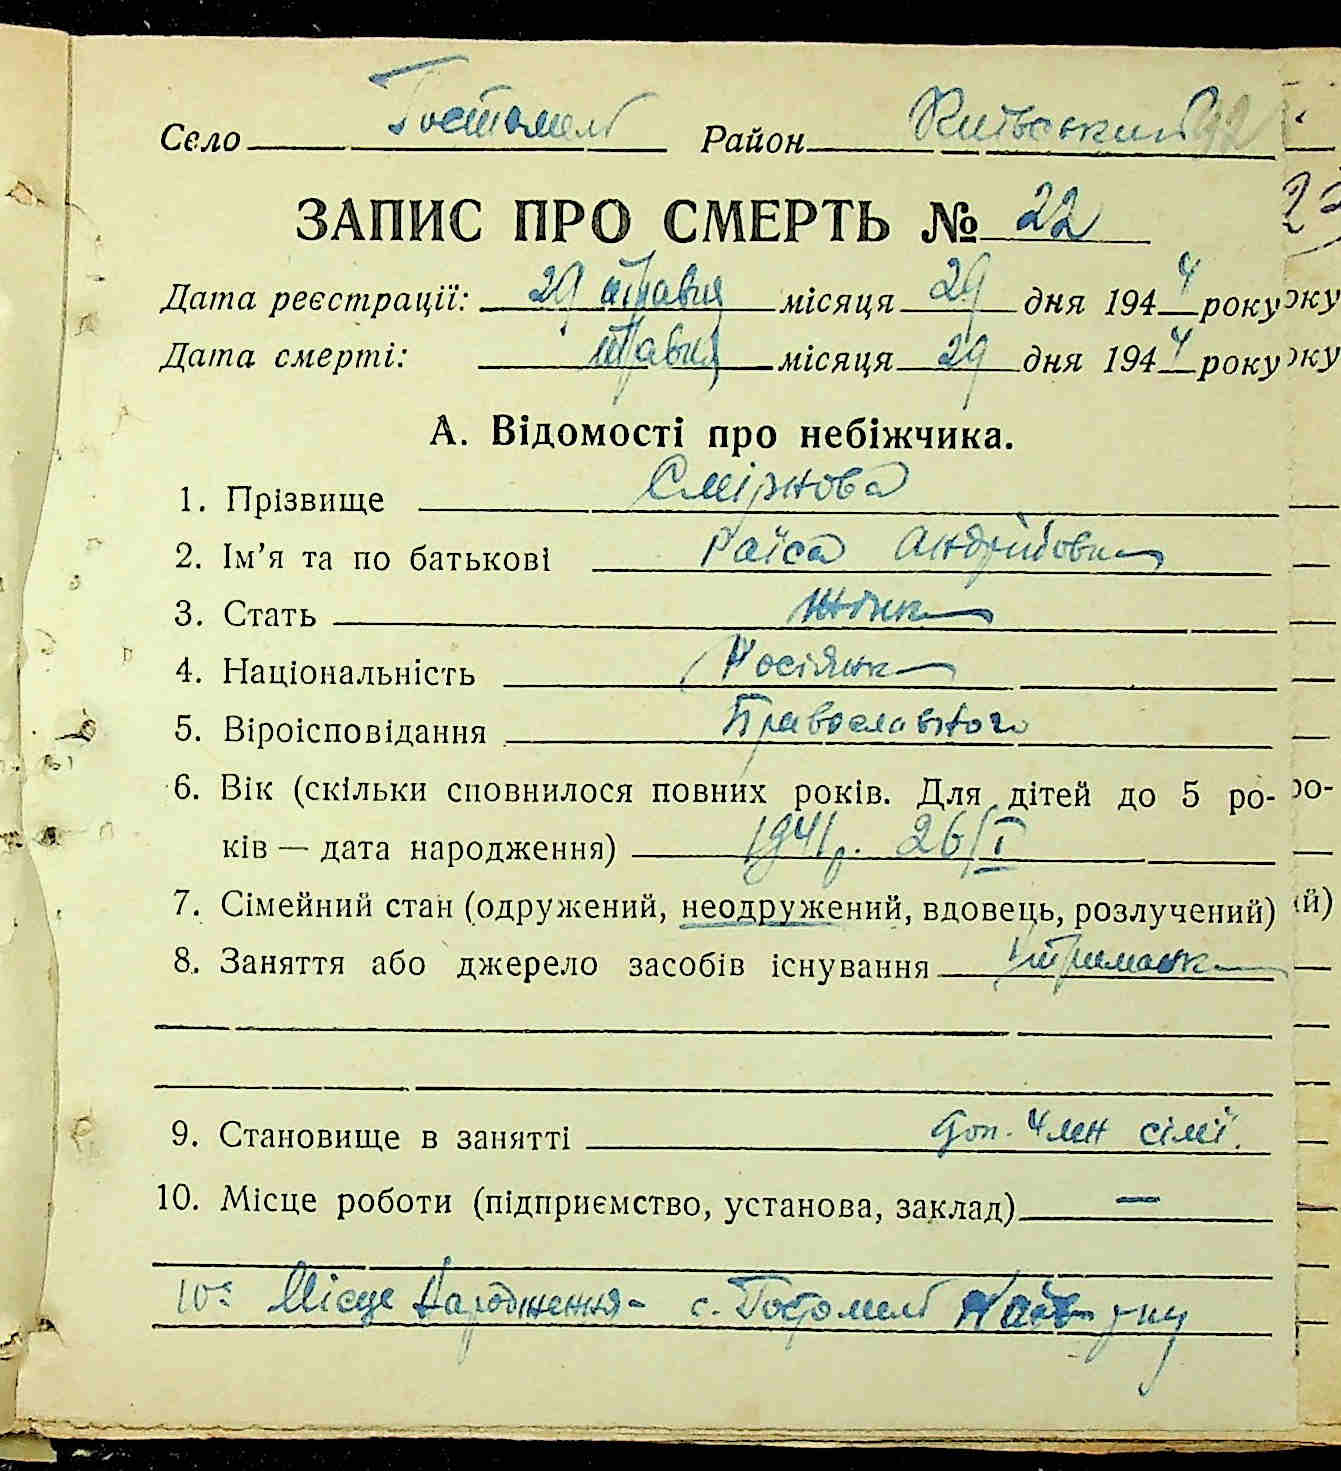 Село Гостомель Район Київський 92
ЗАПИС ПРО СМЕРТЬ № 22
Дата реєстрації: 29 травня місяця 29 дня 1944 року
Дата смерті: травня місяця 29 дня 1944 року
А. Відомості про небіжчика.
1. Прізвище Смірнова
2. Ім’я та по батькові Раїса Андріївна
3. Стать жінка
4. Національність Росіянка
5. Віроісповідання Православного
6. Вік (скільки сповнилося повних років. Для дітей до 5 ро-
ків — дата народження) 1941р. 26/I
7. Сімейний стан (одружений, неодружений, вдовець, розлучений)
8. Заняття або джерело засобів існування Утриманка
9. Становище в занятті доп. член сімї.
10. Місце роботи (підприємство, установа, заклад) —
10а Місце народження - с. Гостомель